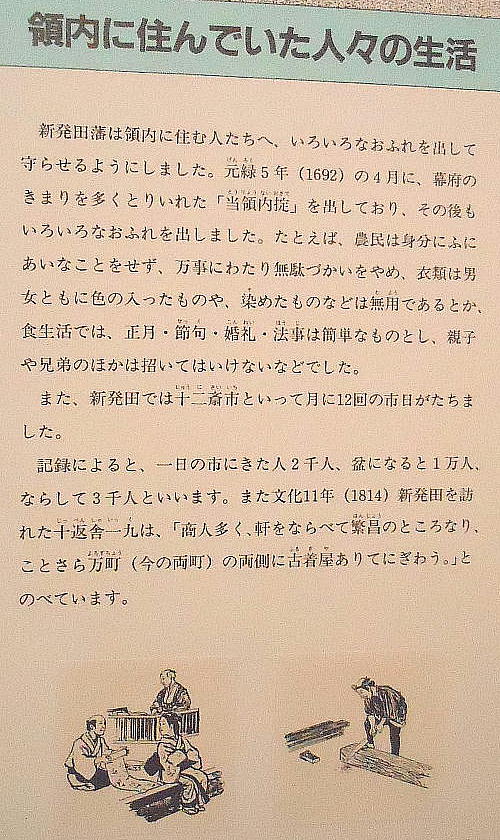 領内に住んでいた人々の生活
新発田藩は領内に住む人たちへ、いろいろなおふれを出して
守らせるようにしました。元禄5年（1692）の4月に、幕府の
きまりを多くとりいれた「当領内掟」を出しており、その後も
いろいろなおふれを出しました。たとえば、農民は身分にふに
あいなことをせず、万事にわたり無駄づかいをやめ、衣類は男
女ともに色の入ったものや、染めたものなどは無用であるとか、
食生活では、正月・節句・婚礼・法事は簡単なものとし、親子
や兄弟のほかは招いてはいけないなどでした。
また、新発田では十二斎市といって月に12回の市日がたちま
した。
記録によると、一日の市にきた人2千人、盆になると1万人、
ならして3千人といいます。また文化11年（1814）新発田を訪
れた十返舎一九は、「商人多く、軒をならべて繁昌のところなり、
ことさら万町（今の両町）の両側に古着屋ありてにぎわう。」と
のべています。